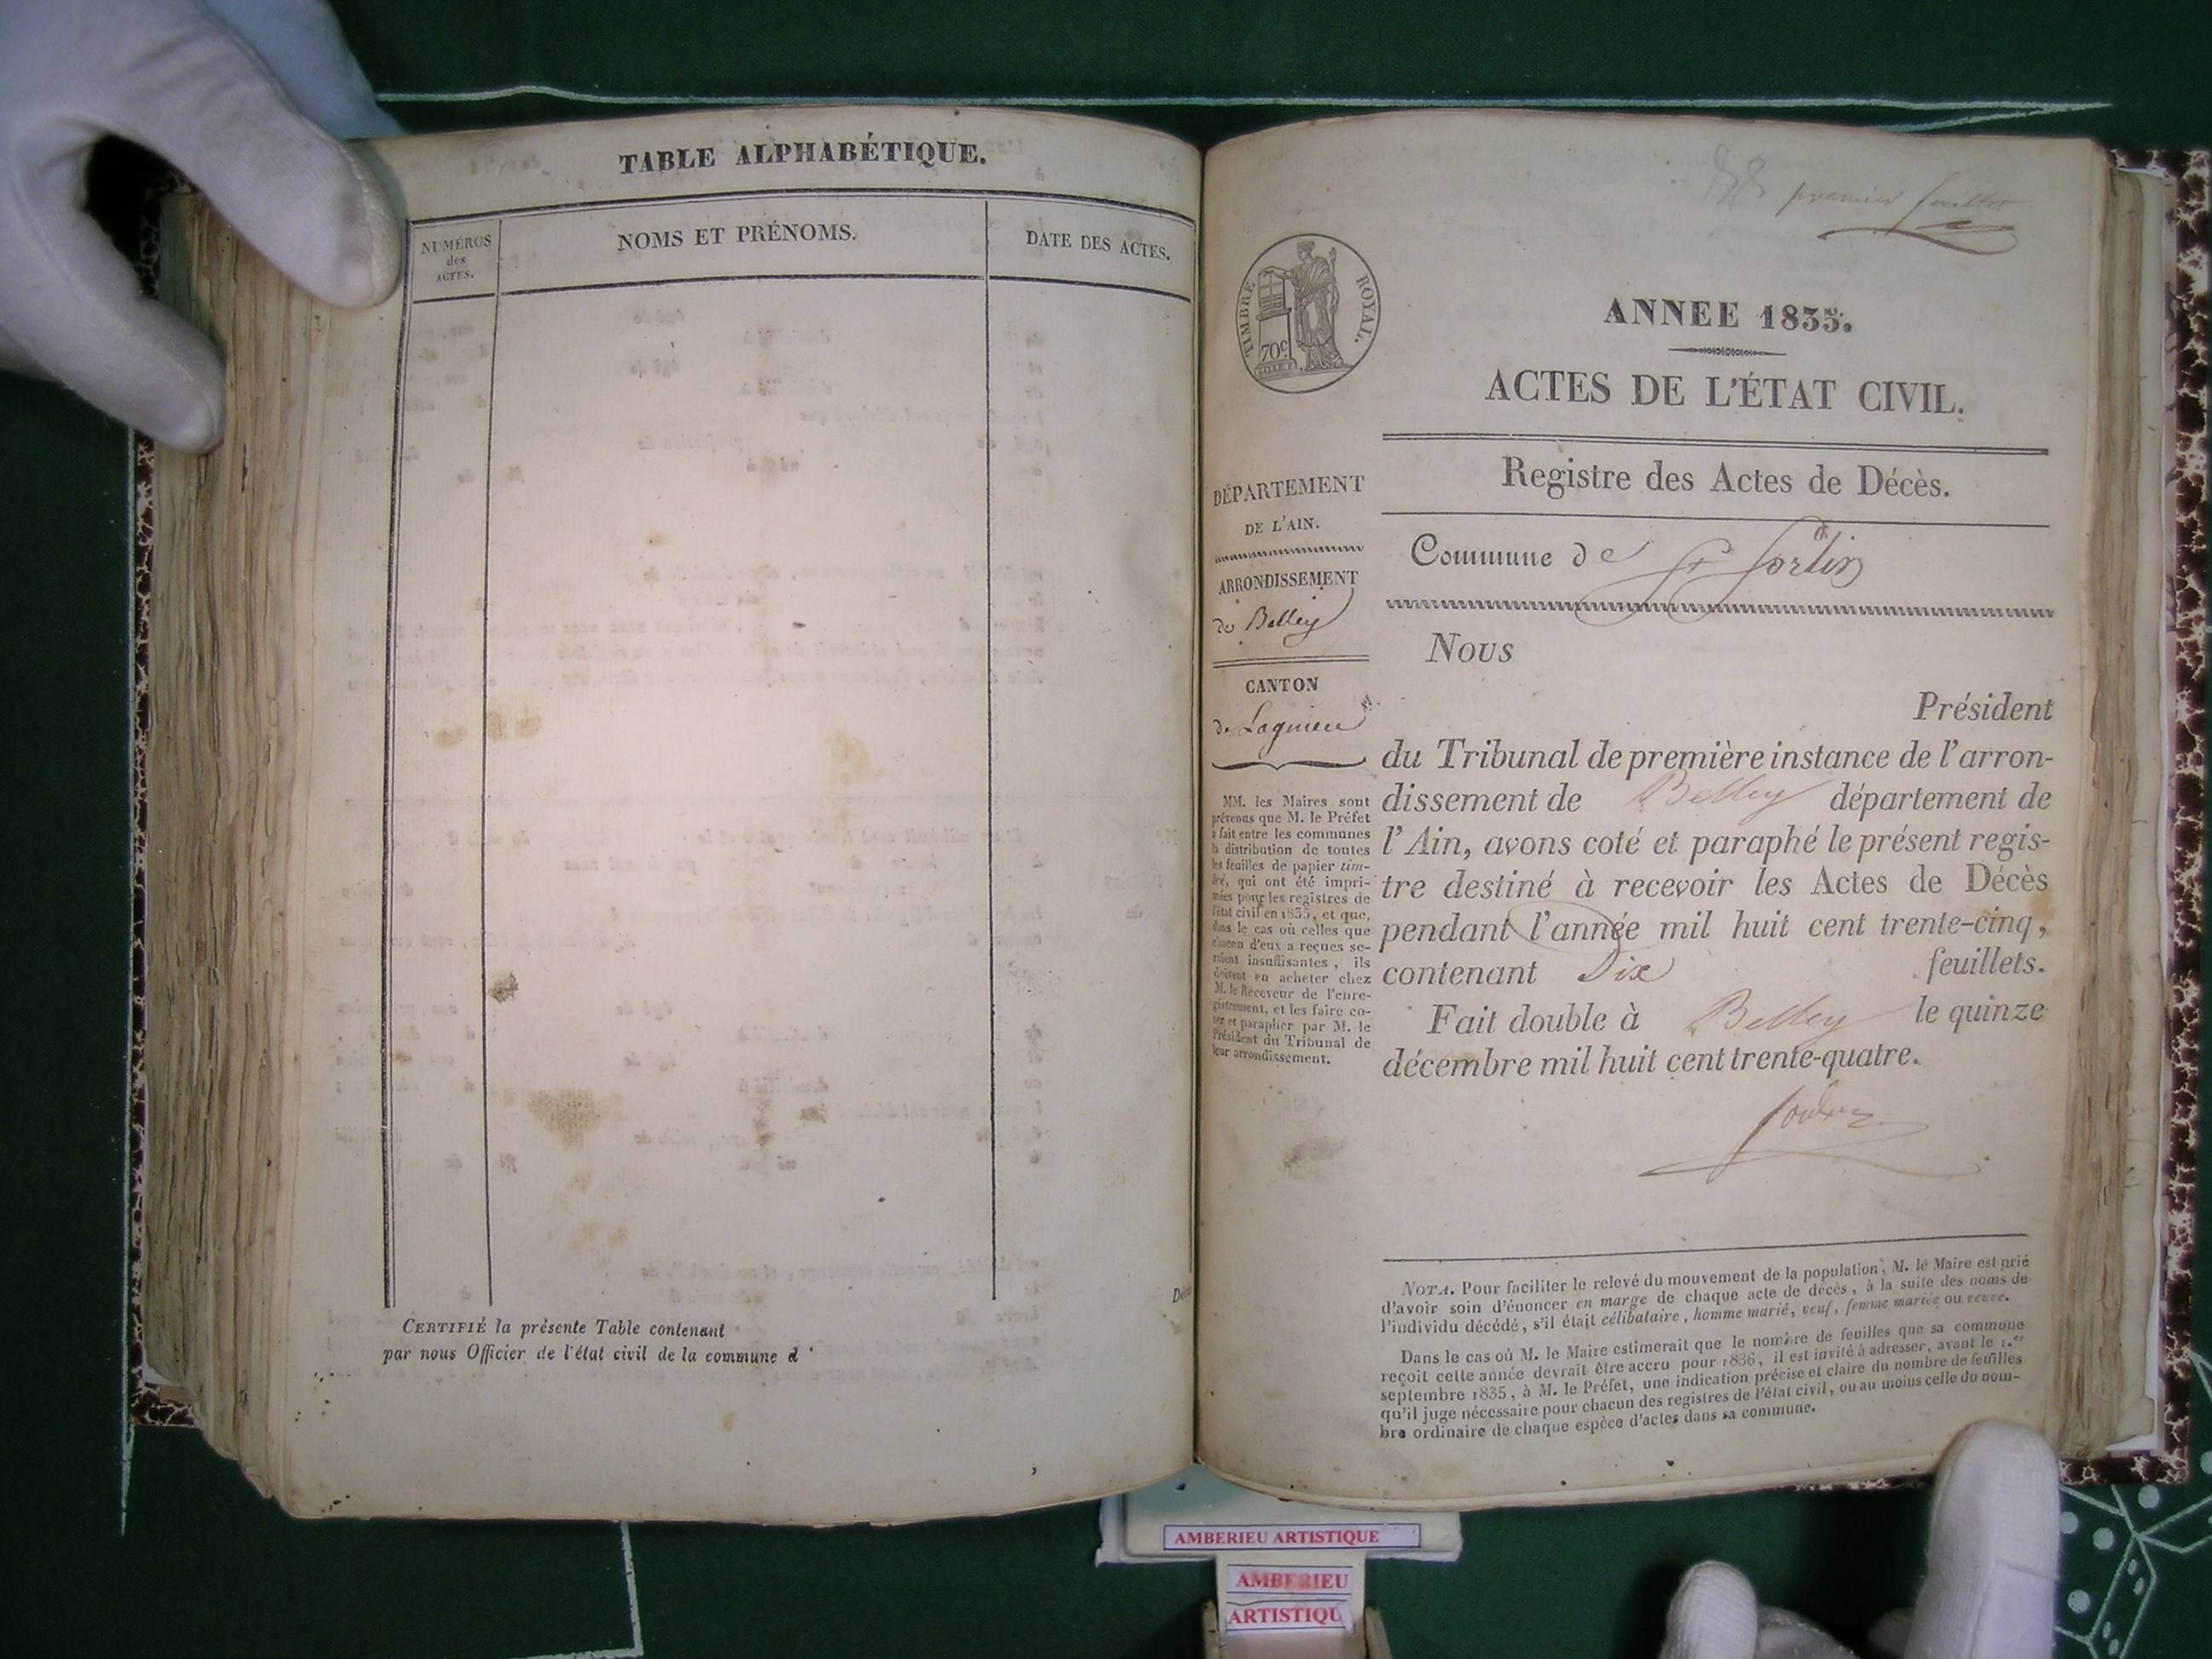 TABLE ALPHABÉTIQUE.
NUMÉROS
des
ACTES.
NOMS ET PRÉNOMS.
DATE DES ACTES.
CERTIFIÉ la présente Table contenant
par nous Officier de l'état civil de la commune d
premier feuillet
TIMBRE ROYAL.
70c
ANNEE 1835.
ACTES DE L'ÉTAT CIVIL.
Registre des Actes de Décès.
Commune de St Sorlin
DÉPARTEMENT
DE L'AIN.
ARRONDISSEMENT
de Belley
CANTON
de Lagnieu
MM. les Maires sont
prévenus que M. le Préfet
a fait entre les communes
la distribution de toutes
les feuilles de papier tim-
bré, qui ont été impri-
mées pour les registres de
l'état civil en 1835, et que,
dans le cas où celles que
chacun d'eux a reçues se-
raient insuffisantes, ils
doivent en acheter chez
M. le Receveur de l'enre-
gistrement, et les faire co-
ter et parapher par M. le
Président du Tribunal de
leur arrondissement.
Nous
Président
du Tribunal de première instance de l'arron-
dissement de Belley département de
l'Ain, avons coté et paraphé le présent regis-
tre destiné à recevoir les Actes de Décès
pendant l'année mil huit cent trente-cinq,
contenant Dix feuillets.
Fait double à Belley le quinze
décembre mil huit cent trente-quatre.
NOTA. Pour faciliter le relevé du mouvement de la population, M. le Maire est prié
d'avoir soin d'énoncer en marge de chaque acte de décès, à la suite des noms de
l'individu décédé, s'il était célibataire, homme marié, veuf, femme mariée ou veuve.
Dans le cas où M. le Maire estimerait que le nombre de feuilles que sa commune
reçoit cette année devrait être accru pour 1836, il est invité à adresser, avant le 1.er
septembre 1835, à M. le Préfet, une indication précise et claire du nombre de feuilles
qu'il juge nécessaire pour chacun des registres de l'état civil, ou au moins celle du nom-
bre ordinaire de chaque espèce d'actes dans sa commune.
AMBERIEU ARTISTIQUE
AMBERIEU
ARTISTIQU